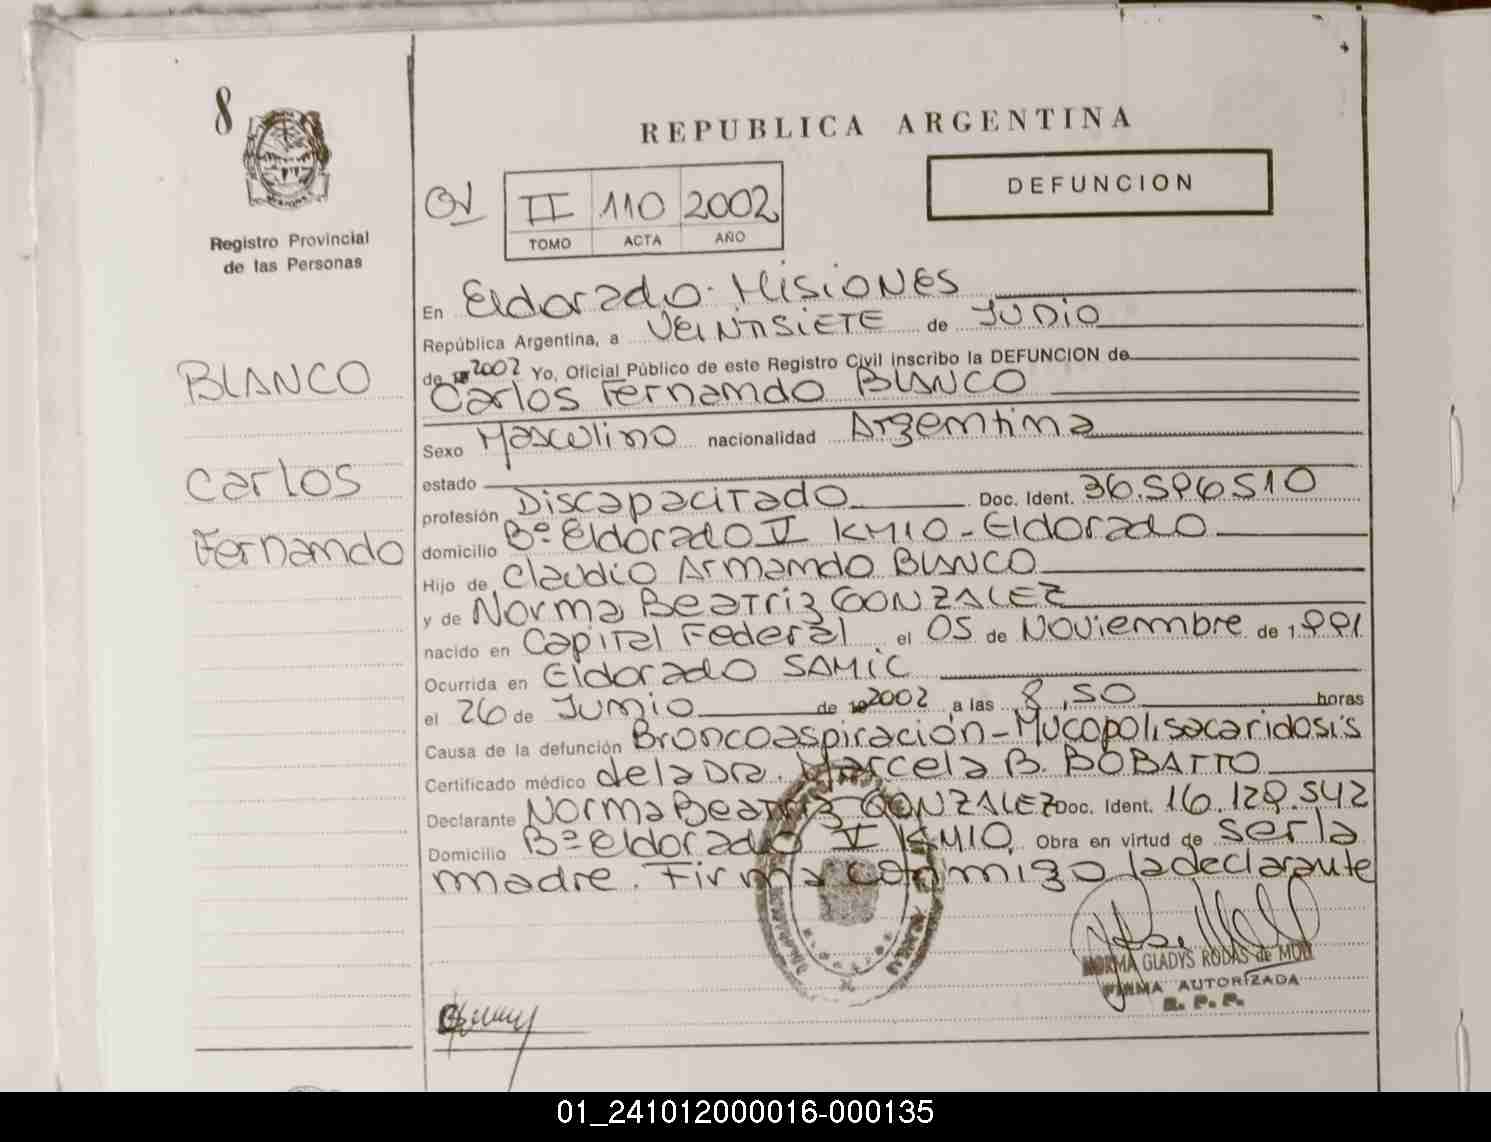 8
REPUBLICA ARGENTINA
DEFUNCION
01
II 110 2002
TOMO ACTA AÑO
Registro Provincial
de las Personas
BLANCO
Carlos
Fernando
En Eldorado. Misiones
República Argentina, a Veintisiete de Junio
de 2002 Yo, Oficial Público de este Registro Civil inscribo la DEFUNCION de
Carlos Fernando BLANCO
Sexo Masculino nacionalidad Argentina
estado
profesión Discapacitado Doc. Ident. 36.596510
domicilio Bº Eldorado V KM10 - Eldorado
Hijo de Claudio Armando BLANCO
y de Norma Beatriz GONZALEZ
nacido en Capital Federal el 05 de Noviembre de 1.991
Ocurrida en Eldorado SAMIC
el 26 de Junio de 2002 a las 8,50 horas
Causa de la defunción Broncoaspiración - Mucopolisacaridosis
Certificado médico de la Dra. Marcela B. BOBATTO
Declarante Norma Beatriz GONZALEZ Doc. Ident. 16.129.542
Domicilio Bº Eldorado V KM10, Obra en virtud de ser la
madre. Firma conmigo la declarante
NORMA GLADYS RODAS de MOLL
FIRMA AUTORIZADA
R. P. P.
01_241012000016-000135